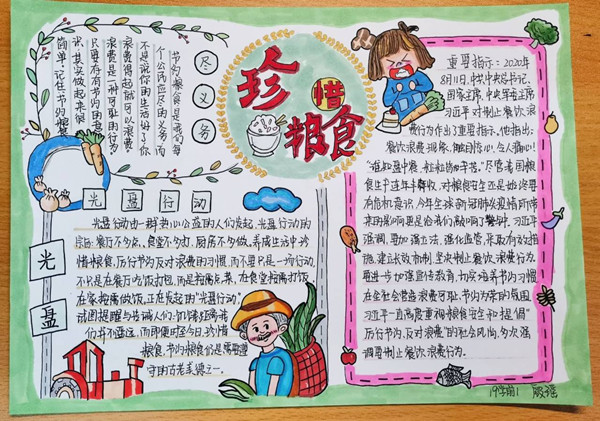 珍惜粮食
尽义务
节约粮食是我们每
个公民应尽的义务,而
不是说你的生活好了,你
浪费得起就可以浪费。
浪费是一种可耻的行为
只要存有节约的意
识,其实做起来很
简单:记住,节约粮食
光盘行动
光盘
光盘行动由一群热心公益的人们发起,光盘行动的
宗旨:餐厅不多点,食堂不多打,厨房不多做。养成生活中珍
惜粮食,厉行节约反对浪费的习惯,而不要只是一场行动。
不只是在餐厅吃饭打包,而是按需点菜,在食堂按需打饭
在家按需做饭,正在发起的“光盘行动”,
试图提醒与告诫人们:饥饿距离我
们并不遥远,而即便时至今日,珍惜
粮食,节约粮食仍是需要遵
守的古老美德之一。
重要指示:2020年
8月11日,中共中央总书记、
国家主席、中央军委主席
习近平对制止餐饮浪
费行为作出重要指示,他指出,
餐饮浪费现象,触目惊心、令人痛心!
“谁知盘中餐,粒粒皆辛苦。”尽管我国粮
食生产连年丰收,对粮食安全还是始终要
有危机意识,今年全球新冠肺炎疫情所带
来的影响更是给我们敲响了警钟。习近平
强调,要加强立法,强化监管,采取有效措
施,建立长效机制,坚决制止餐饮浪费行为
要进一步加强宣传教育,切实培养节约习惯
在全社会营造浪费可耻、节约为荣的氛围
习近平一直高度重视粮食安全和提倡“
厉行节约、反对浪费”的社会风尚,多次强
调要制止餐饮浪费行为。
19学前1